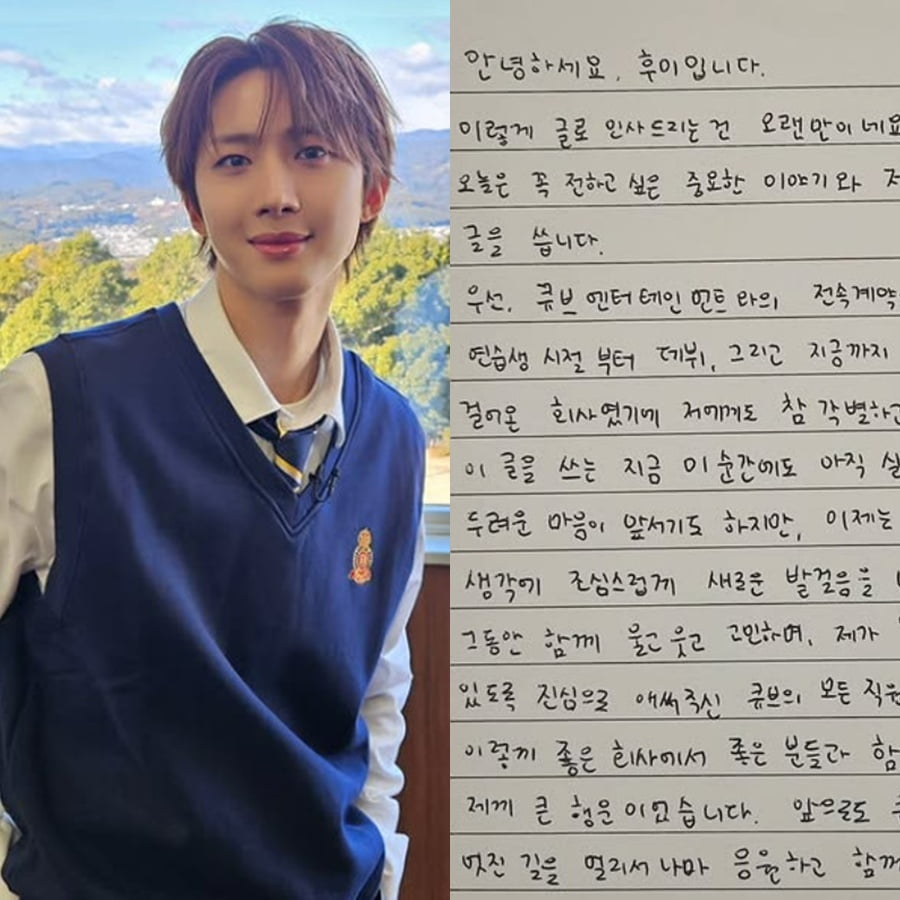 안녕하세요, 후이입니다.
이렇게 글로 인사드리는건 오랜만이네요
오늘은 꼭 전하고 싶은 중요한 이야기와
글을 씁니다.
우선, 큐브엔터테인먼트와의 전속계약
연습생 시절 부터 데뷔, 그리고 지금까지
걸어온 회사였기에 저에게도 참 각별하고
이 글을 쓰는 지금 이 순간에도 아직
두려운 마음이 앞서기도 하지만, 이제는
생각에 조심스럽게 새로운 발걸음을
그동안 함께 울고 웃고 고민하며, 제가
있도록 진심으로 애써주신 큐브의 모든 직원
이렇게 좋은 회사에서 좋은 분들과 함
제게 큰 행운이었습니다. 앞으로도
멋진 길을 멀리서 나마 응원하고 함께